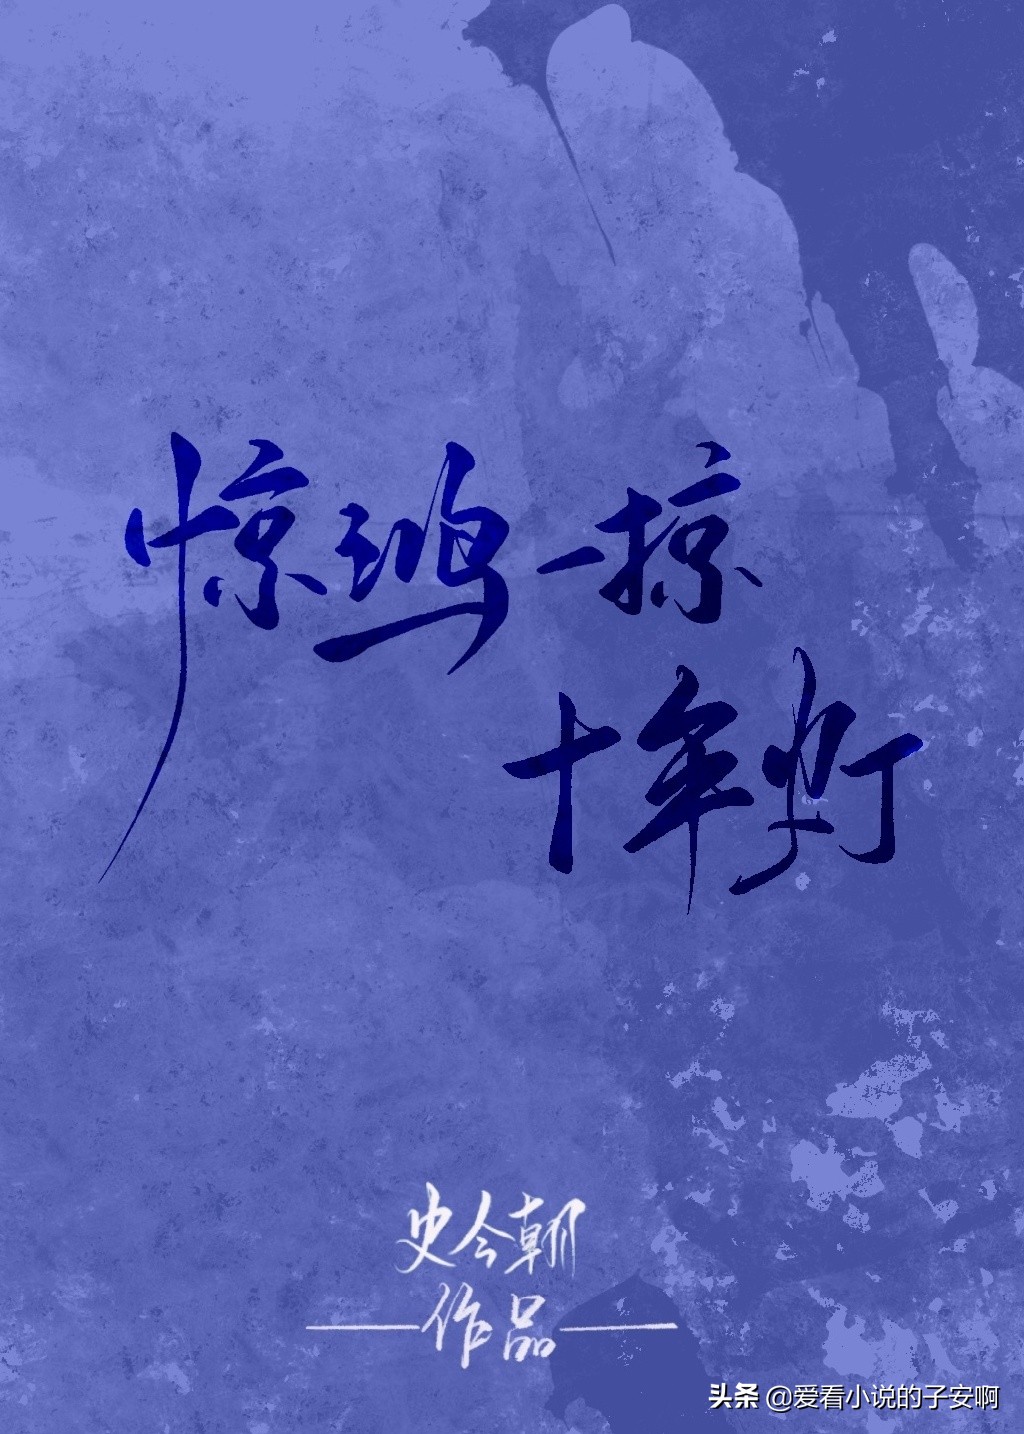 惊鸿一掠
十年灯
史今朝
作品
头条 @爱看小说的子安啊